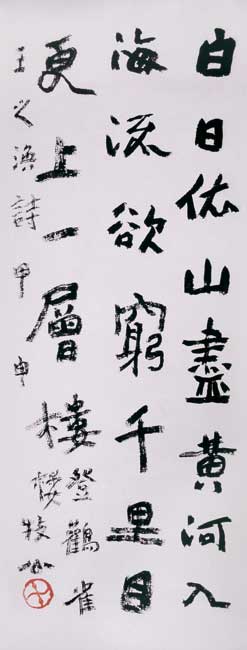 白日依山盡黃河入
海流欲窮千里目
更上一層樓
登鸛雀
樓牧公
王之渙詩甲申